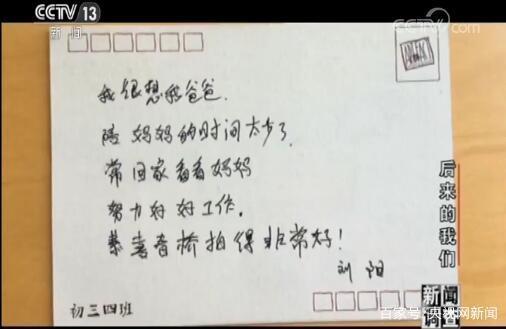 CCTV 13
新闻
CCTV.com
我很想我爸爸.
陪妈妈的时间太少了.
常回家看看妈妈
努力好好工作.
恭喜音桥拍得非常好!
刘阳
初三四班
后来的我们
新闻
调查
百家号·央视网新闻